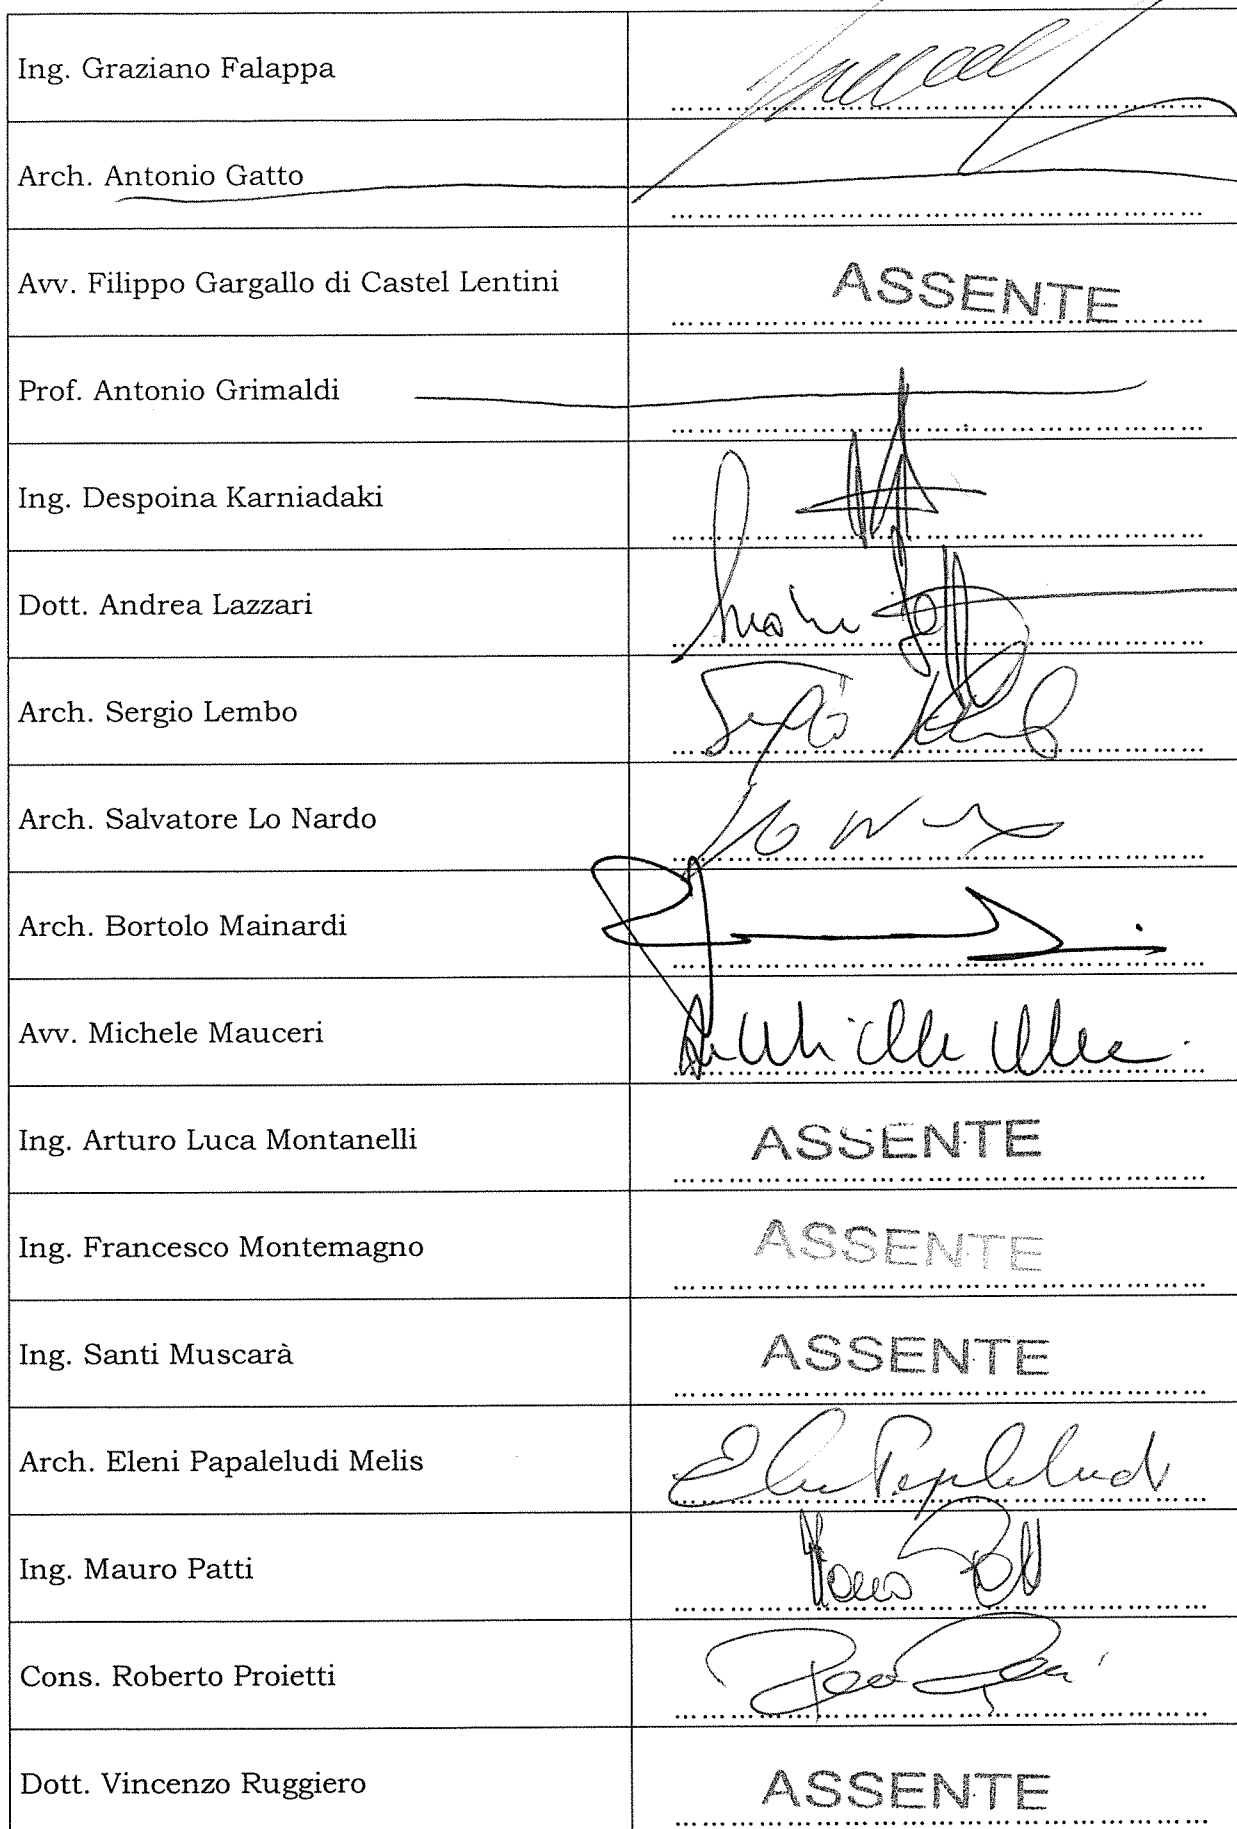 Ing. Graziano Falappa
Arch. Antonio Gatto
Avv. Filippo Gargallo di Castel Lentini ASSENTE
Prof. Antonio Grimaldi
Ing. Despoina Karniadaki
Dott. Andrea Lazzari
Arch. Sergio Lembo
Arch. Salvatore Lo Nardo
Arch. Bortolo Mainardi
Avv. Michele Mauceri
Ing. Arturo Luca Montanelli ASSENTE
Ing. Francesco Montemagno ASSENTE
Ing. Santi Muscarà ASSENTE
Arch. Eleni Papaleludi Melis
Ing. Mauro Patti
Cons. Roberto Proietti
Dott. Vincenzo Ruggiero ASSENTE